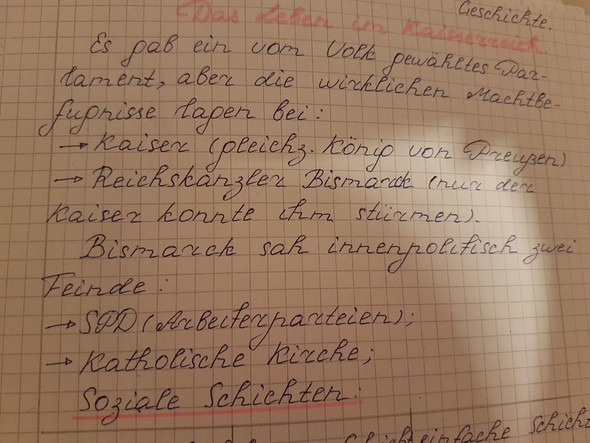 Geschichte.
Das Leben im Kaiserreich.
Es gab ein vom Volk gewähltes Par-
lament, aber die wirklichen Machtbe-
fugnisse lagen bei:
→ Kaiser (gleichz. König von Preußen)
→ Reichskanzler Bismarck (nur der
Kaiser konnte ihm stürmen).
Bismarck sah innenpolitisch zwei
Feinde:
→ SPD (Arbeiterparteien);
→ Katholische Kirche;
Soziale Schichten:
einfache Schicht